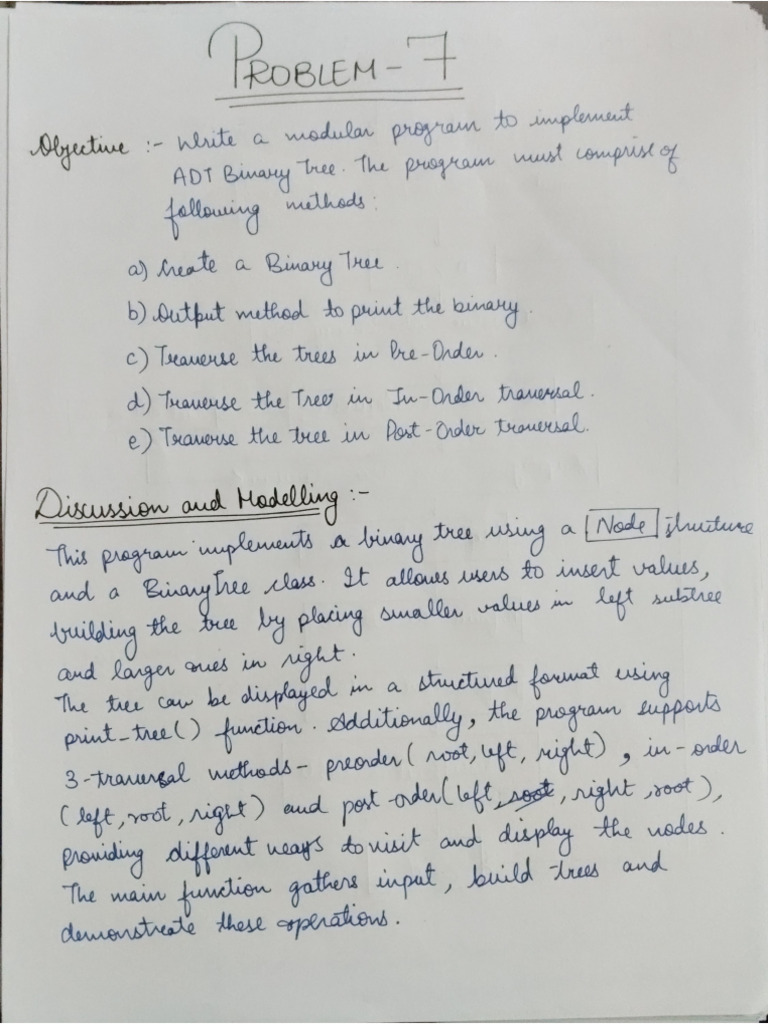 PROBLEM - 7
Objective :- Write a modular program to implement
ADT Binary Tree. The program must comprise of
following methods:
a) Create a Binary Tree.
b) Output method to print the binary.
c) Traverse the trees in Pre-Order.
d) Traverse the Tree in In-Order traversal.
e) Traverse the tree in Post-Order traversal.
Discussion and Modelling :-
This program implements a binary tree using a Node structure
and a BinaryTree class. It allows users to insert values,
building the tree by placing smaller values in left subtree
and larger ones in right.
The tree can be displayed in a structured format using
print_tree() function. Additionally, the program supports
3-traversal methods - preorder (root, left, right), in-order
(left, root, right) and post-order (left, root, right, root),
providing different ways to visit and display the nodes.
The main function gathers input, build trees and
demonstrate these operations.